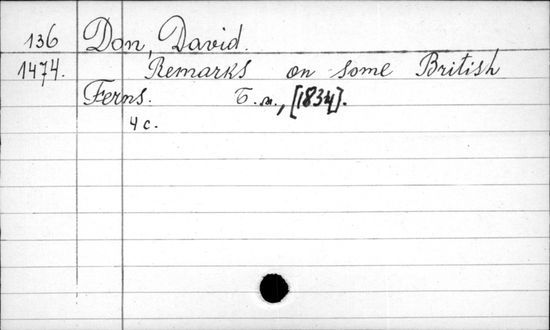 136 Don, David.
1474. Remarks on some British
Ferns. Б.м., [1834].
4 с.